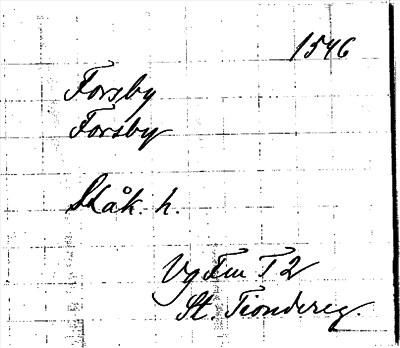 1546
Forsby
Forsby
Skåk. h.
Vg Fm T 2
St. Tiondereg.